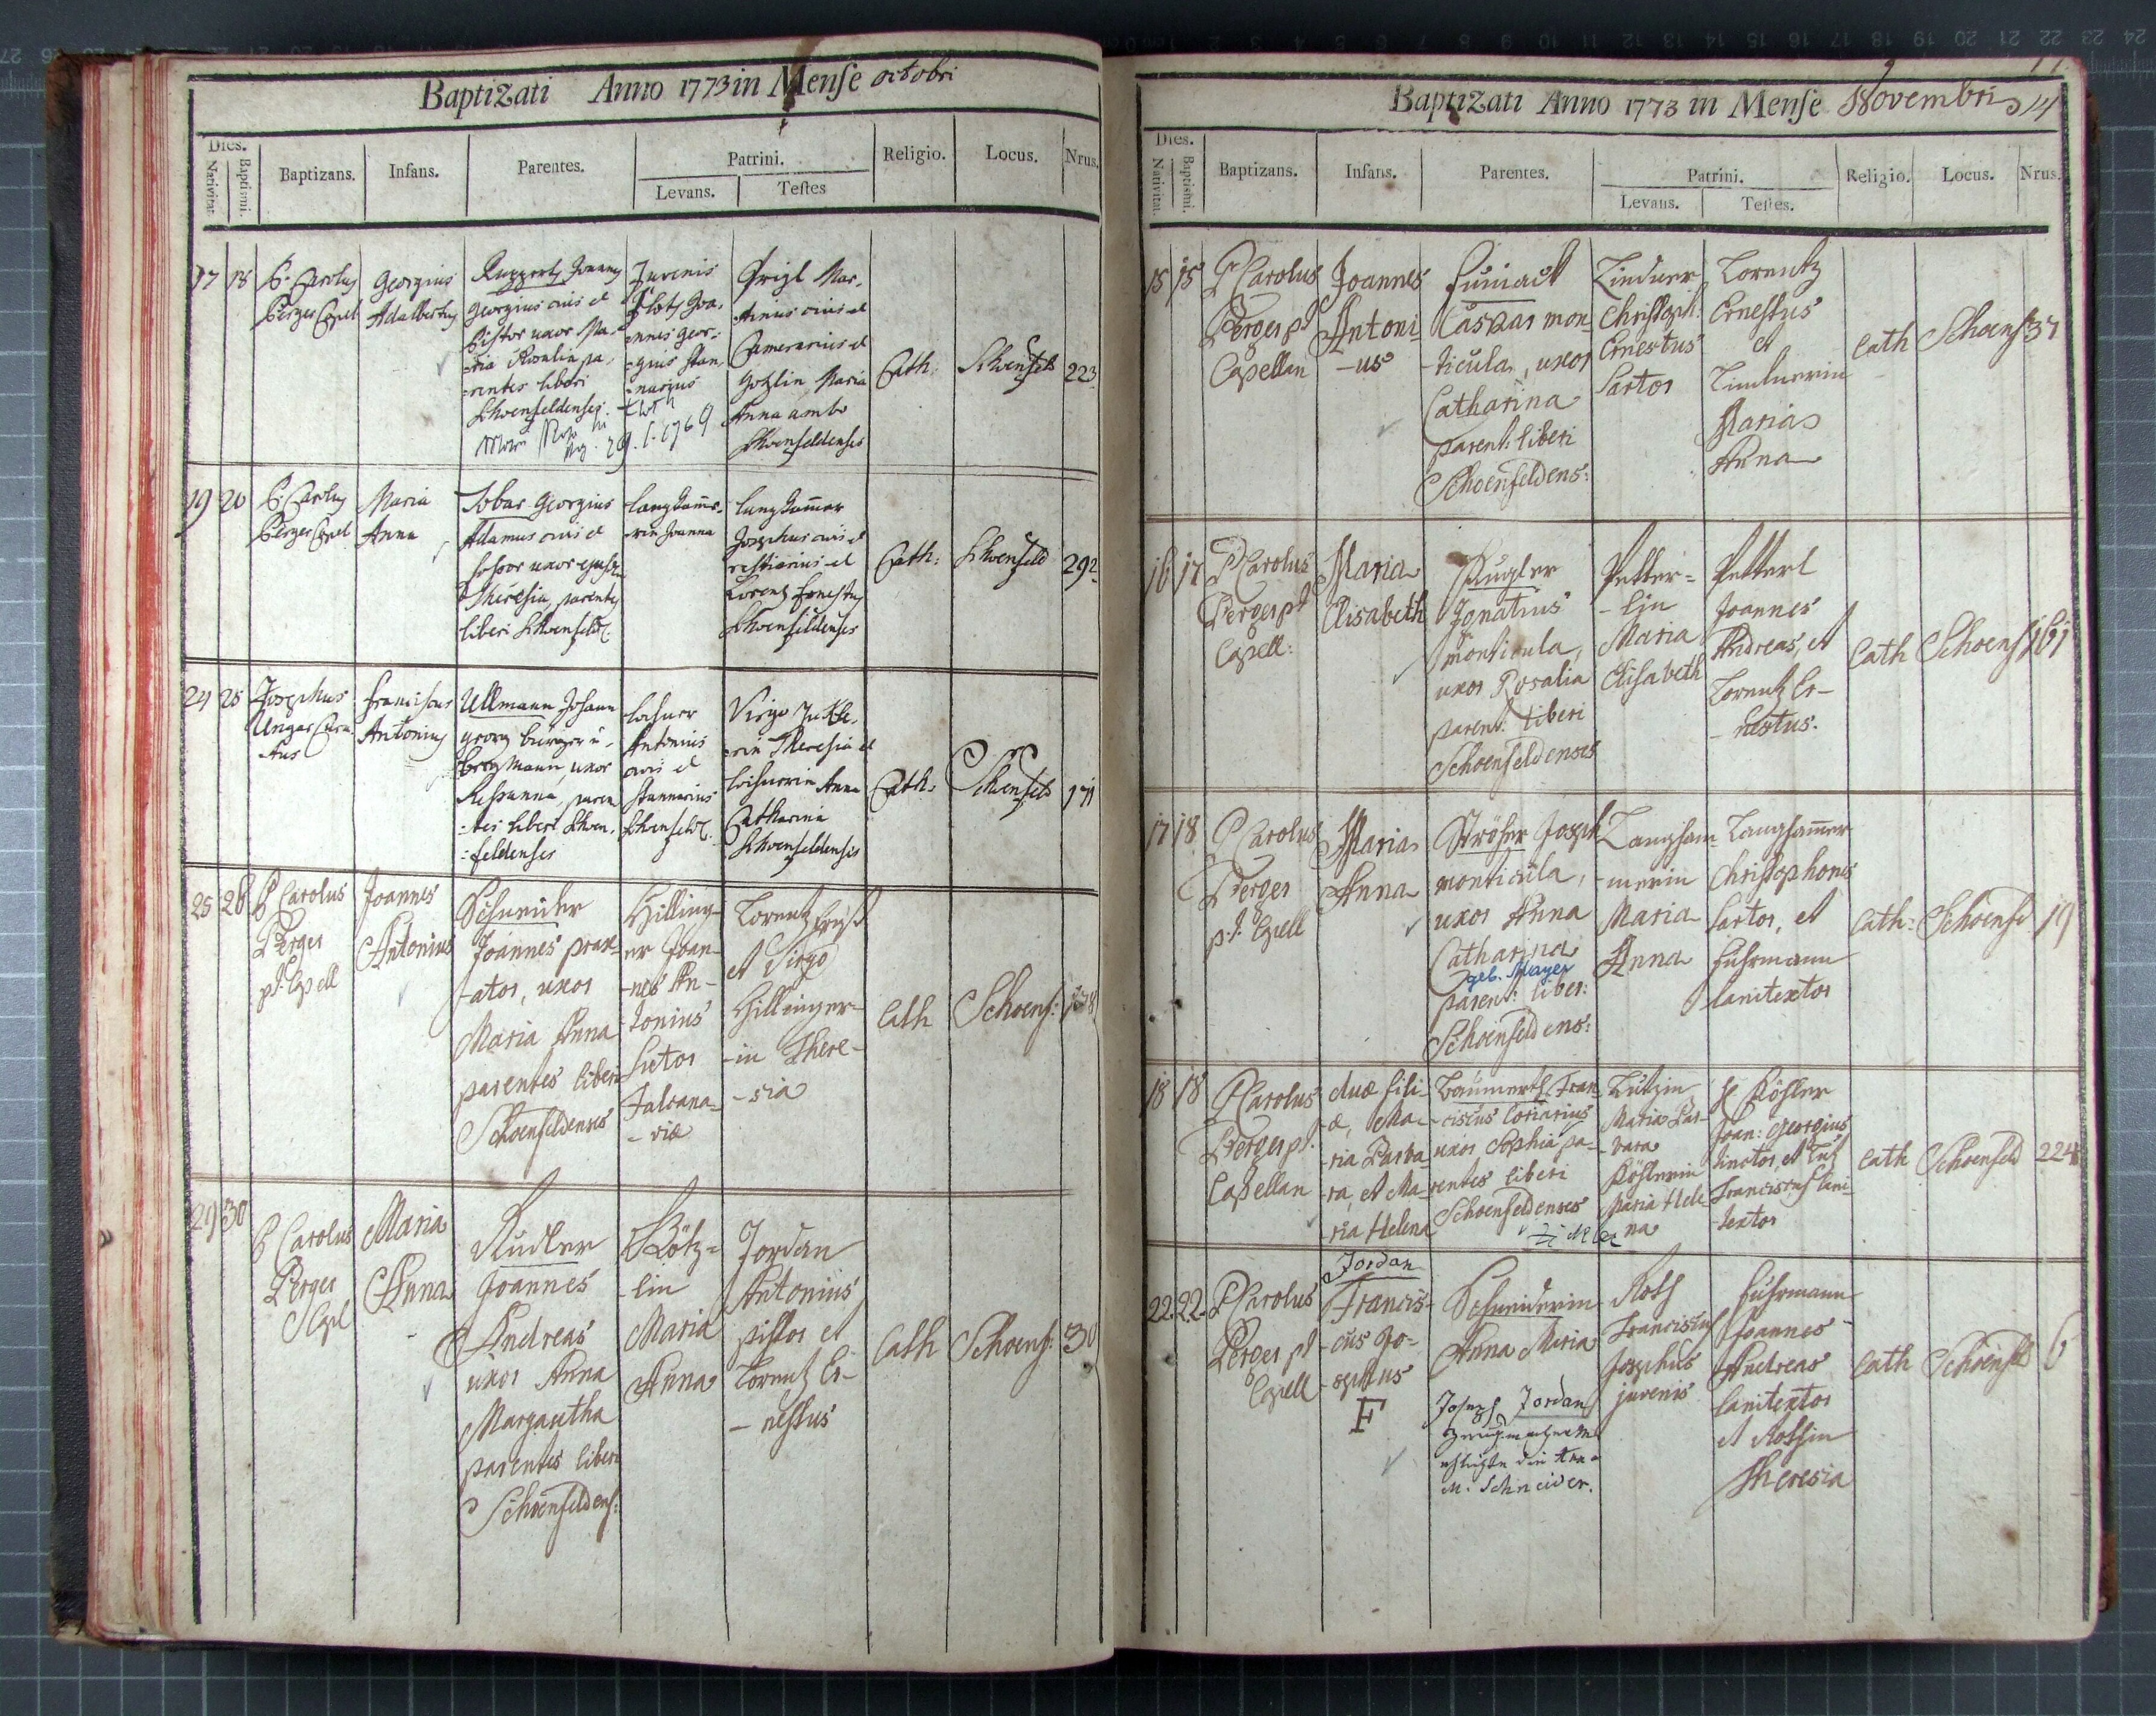 Baptizati Anno 1773 in Mense octobri
Dies.
Nativitat.
Baptismi.
Baptizans.
Infans.
Parentes.
Patrini.
Levans.
Testes
Religio.
Locus.
Nrus.
17 18
P. Carolus
Perger Capel
Georgius
Adalbertus
Ruppert Joannes
Georgius civis et
Pistor uxor Ma-
-ria Rosalia pa-
-rentes liberi
Schoenfeldenses.
Juvenis
Joa-
nnes Geor-
-gius stan-
-narius
Mar-
tinus civis et
Camerarius et
Gotzlin Maria
Anna ambo
Schoenfeldenses
Cath:
Schoenfeld
223
19 20
P. Carolus
Perger Capel
Maria
Anna
Tobar Georgius
Adamus civis et
fossor uxor ejusdem
Theresia parentes
liberi Schoenfeld.
Langhame-
-rin Joanna
Langhammer
Josephus civis et
restiarius et
Lorentz Ernestus
Schoenfeldenses
Cath:
Schoenfeld
292
24 25
Josephus
Ungar Cura-
tus
Franciscus
Antonius
Ullmann Johann
georg burger u.
bergmann uxor
Rosanna, paren
-tes liberi Schoen-
-feldenses
Lochner
Antonius
civis et
stannarius
Schoenfeld.
Virgo
-rin Theresia et
Lochnerin Anna
Catharina
Schoenfeldenses
Cath:
Schoenfeld
171
25 26
P Carolus
Perger
p.t. Capell
Joannes
Antonius
Schneider
Joannes
ator, uxor
Maria Anna
parentes liberi
Schoenfeldenses
Hilling-
er Joan-
-nes An-
-tonius
Sutor
Falcana-
-viæ
Lorentz Ernst
et Virgo
Hillinger-
-in There-
-sia
Cath
Schoenf:
178
29 30
P Carolus
Perger
Capel
Maria
Anna
Joannes
Andreas
uxor Anna
Margaritha
parentes liberi
Schoenfeldens:
Götz-
-lin
Maria
Anna
Jordan
Antonius
pistor et
Lorentz Er-
-nestus
Cath
Schoenf:
30
Baptizati Anno 1773 in Mense Novembris
Dies.
Nativitat.
Baptismi.
Baptizans.
Infans.
Parentes.
Patrini.
Levans.
Testes.
Religio.
Locus.
Nrus.
15 15
P Carolus
Perger pt
Capellan
Joannes
Antoni-
-us
Caspar mon-
-ticula, uxor
Catharina
parent: liberi
Schoenfeldens:
Lindner
Christoph:
Ernestus
Sartor
Lorentz
Ernestus
et
Lindnerin
Maria
Anna
Cath
Schoenf
37
16 17
P Carolus
Perger pt
Capell:
Maria
Elisabeth
Kugler
Ignatius
monticula,
uxor Rosalia
parent. liberi
Schoenfeldenses
Petter-
-lin
Maria
Elisabeth
Petterl
Joannes
Andreas, et
Lorentz Er-
-nestus.
Cath
Schoenf
161
17 18
P Carolus
Perger
p.t. Capell
Maria
Anna
Ströher Joseph
monticula,
uxor Anna
Catharina
geb. Mayer
parent: liber:
Schoenfeldens:
Langham-
-merin
Maria
Anna
Langhammer
Christophorus
Sartor, et
Fuhrmann
lanitextor
Cath:
Schoenfd
19
18 18
P Carolus
Perger pt.
Capellan
duæ fili-
-æ, Ma-
-ria Barba-
-ra, et Ma-
-ria Helena
Baumertl Fran-
-ciscus Coriarius
uxor Sophia pa-
-rentes liberi
Schoenfeldenses
Lützin
Maria Bar-
-bara
Köhlerin
Maria Hele
na
H Köhler
Joan: Georgius
tinctor, et Lutz
Franciscus lani-
-textor
Cath
Schoenfeld
224
22 22
P Carolus
Perger pt
Capell
Jordan
Francis-
-cus Jo-
-sephus
F
Schneiderin
Anna Maria
Joseph Jordan
Zeugmacher
ehligte die Anna
M. Schneider.
Roth
Franciscus
Josephus
juvenis
Fuhrmann
Joannes
Andreas
lanitextor
et Rothin
Theresia
Cath
Schoenfeld
6